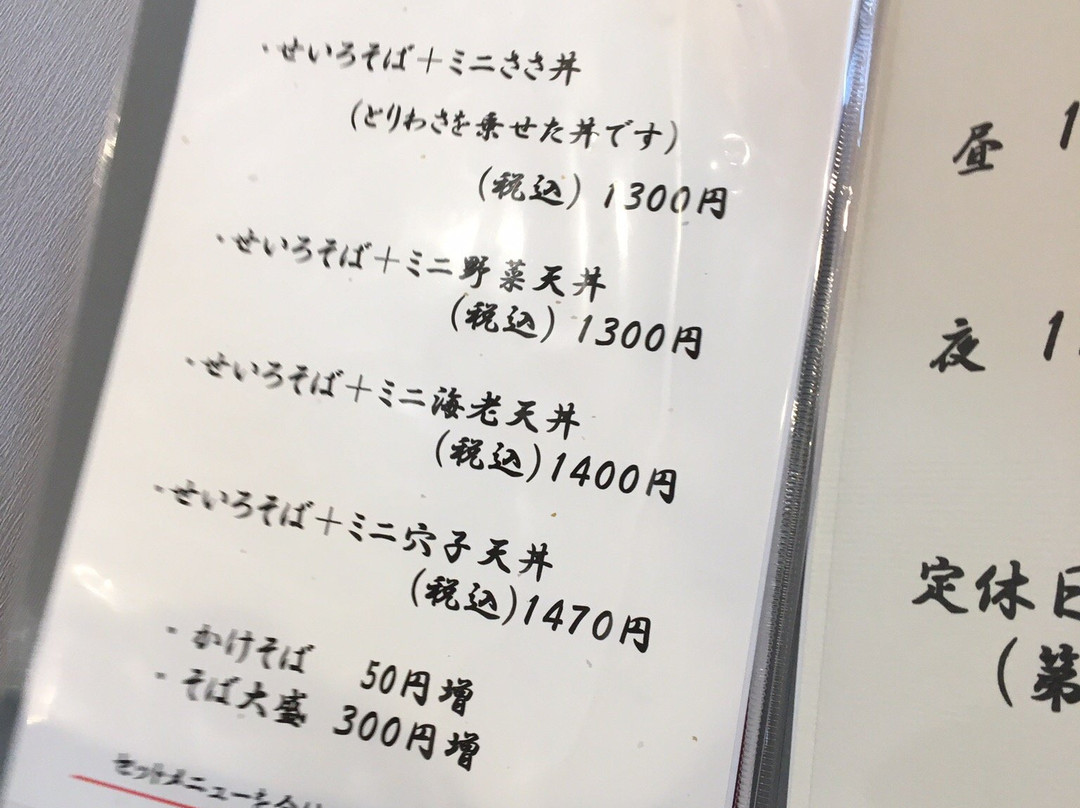 ・せいろそば＋ミニささ丼
(とりわさを乗せた丼です)
(税込) 1300円
・せいろそば＋ミニ野菜天丼
(税込) 1300円
・せいろそば＋ミニ海老天丼
(税込)1400円
・せいろそば＋ミニ穴子天丼
(税込)1470円
・かけそば 50円増
・そば大盛 300円増
セットメニューを
昼 1
夜 1
定休日
(第